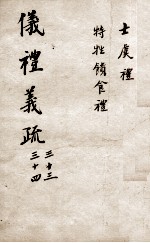 士虞禮
特牲饋食禮
儀禮義疏
三十三
三十四